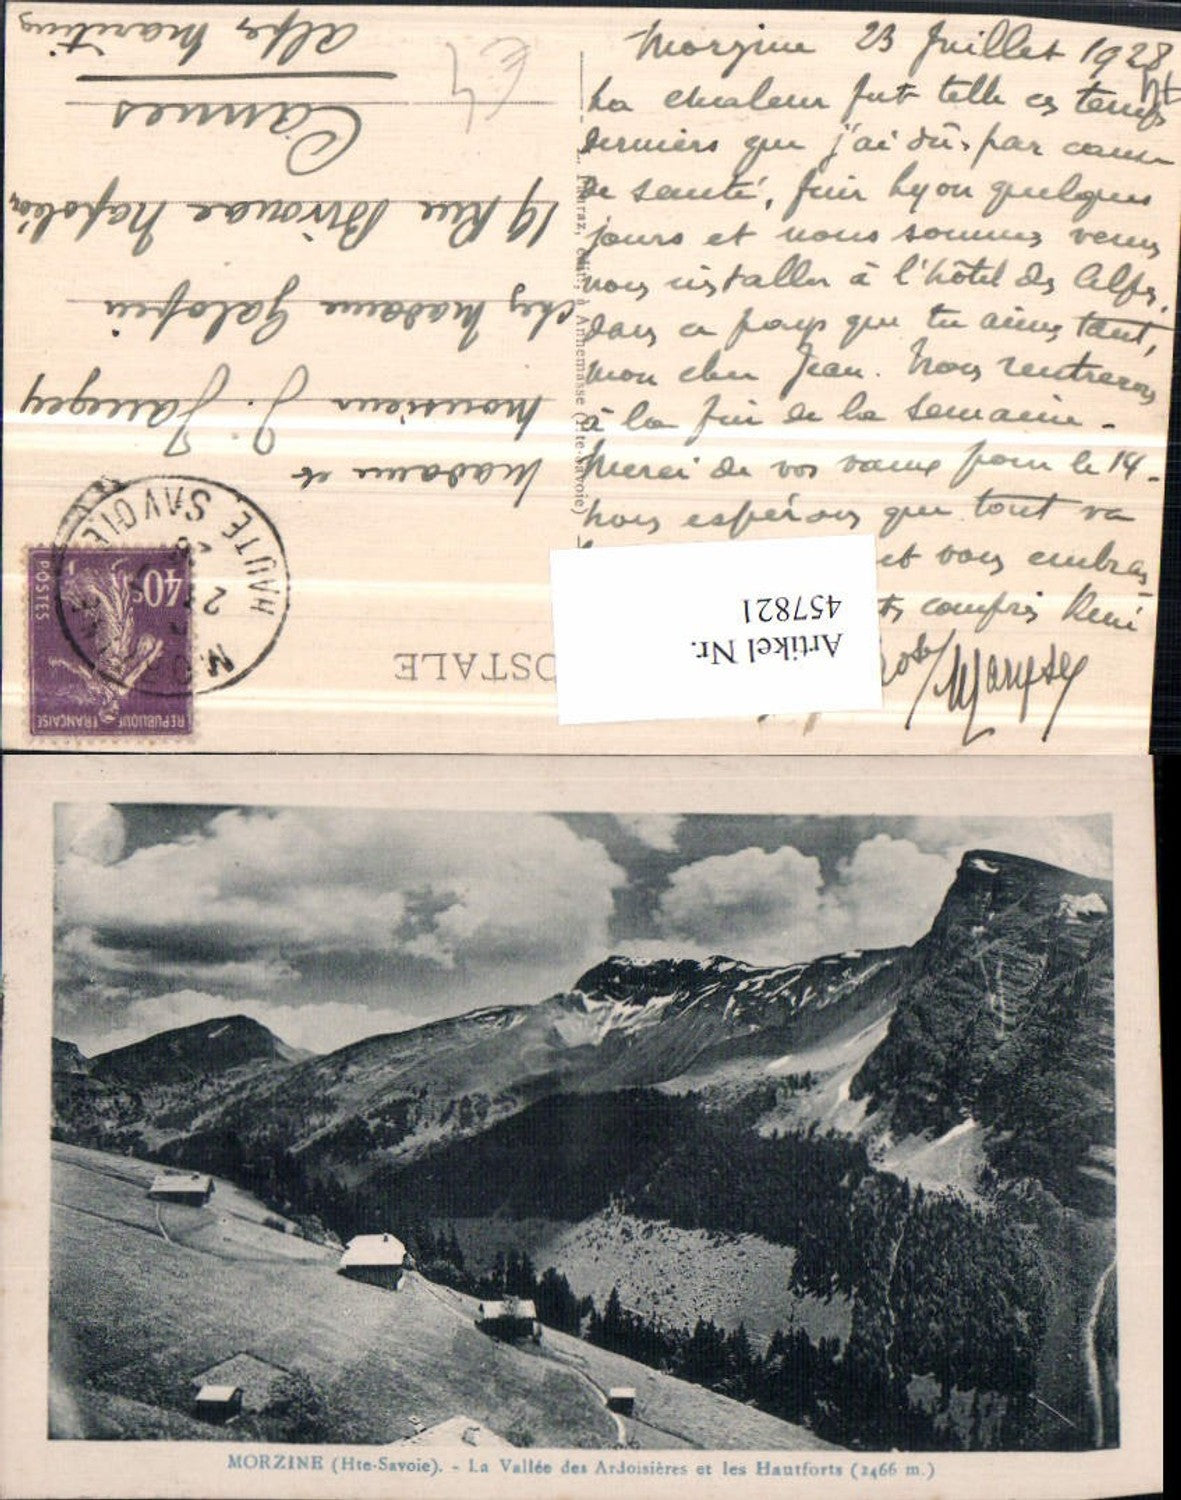 Morzine 23 Juillet 1928
La chaleur fut telle ces temps
derniers que j'ai dû, par cause
de santé, fuir Lyon quelques
jours et nous sommes venus
nous installer à l'hôtel des Alpes,
dans ce pays que tu aimes tant,
mon cher Jean. Nous rentrerons
à la fin de la semaine.
Merci de vos vœux pour le 14.
Nous espérons que tout va
et vous embras
compris René
Artikel Nr.
457821
Madame et
Monsieur J. Jangey
chez Madame Galopin
19 Rue Bivouac Napoléon
Cannes
Alpes Maritimes
OSTALE
Annemasse (Hte-Savoie)
HAUTE SAVOIE
REPUBLIQUE FRANÇAISE
40c
POSTES
MORZINE (Hte-Savoie). - La Vallée des Ardoisières et les Hautforts (2466 m.)